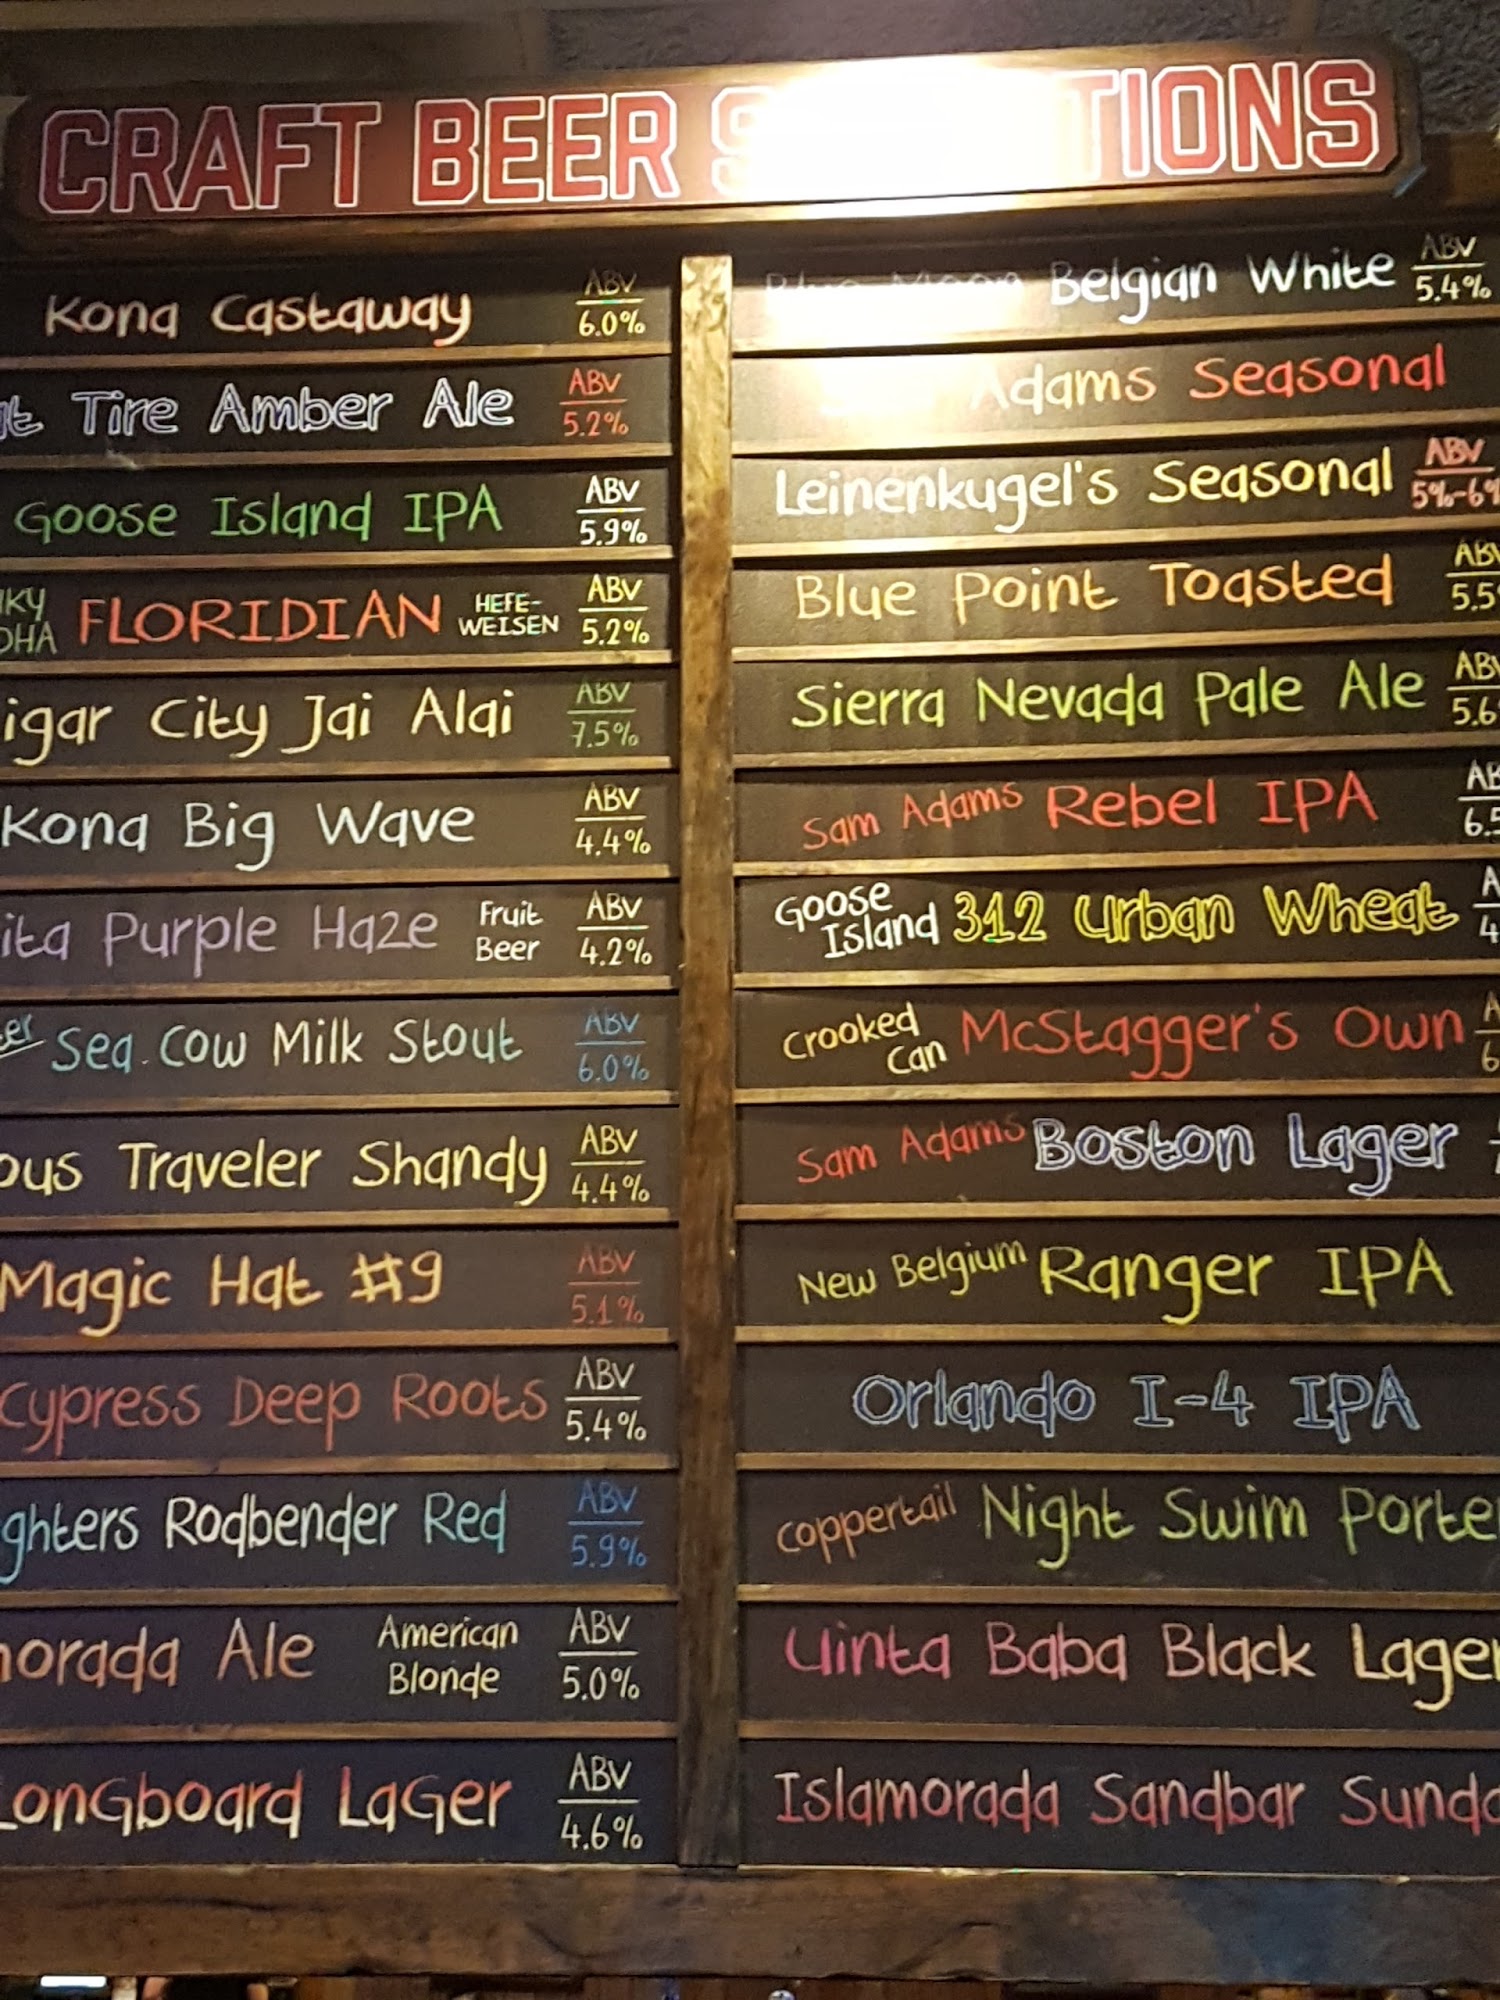 CRAFT BEER
Kona Castaway ABV 6.0%
Tire Amber Ale ABV 5.2%
Goose Island IPA ABV 5.9%
FLORIDIAN HEFE-WEISEN ABV 5.2%
igar City Jai Alai ABV 7.5%
Kona Big Wave ABV 4.4%
ita Purple Haze Fruit Beer ABV 4.2%
Sea Cow Milk Stout ABV 6.0%
ous Traveler Shandy ABV 4.4%
Magic Hat #9 ABV 5.1%
Cypress Deep Roots ABV 5.4%
ghters Rodbender Red ABV 5.9%
morada Ale American Blonde ABV 5.0%
Longboard Lager ABV 4.6%
Belgian White ABV 5.4%
Adams Seasonal
Leinenkugel's Seasonal ABV 5%-6%
Blue Point Toasted ABV 5.5
Sierra Nevada Pale Ale ABV 5.6
Sam Adams Rebel IPA AB 6.5
Goose Island 312 Urban Wheat A 4
Crooked Can McStagger's Own A 6
Sam Adams Boston Lager
New Belgium Ranger IPA
Orlando I-4 IPA
Coppertail Night Swim Porte
Uinta Baba Black Lager
Islamorada Sandbar Sunda